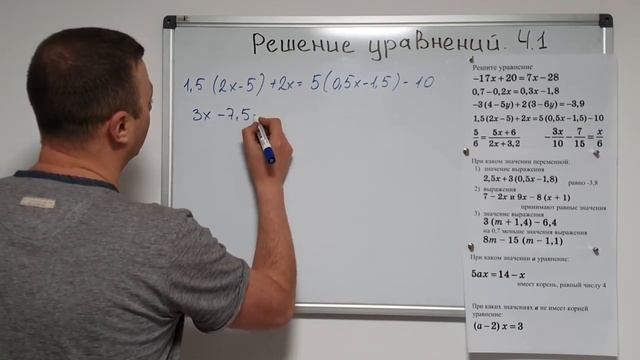 Решение уравнений. Ч.1
1,5 (2x-5) + 2x = 5 (0,5x-1,5) - 10
3x - 7,5
Решите уравнение
−17x + 20 = 7x − 28
0,7 − 0,2x = 0,3x − 1,8
−3(4 − 5y) + 2(3 − 6y) = −3,9
1,5(2x − 5) + 2x = 5(0,5x − 1,5) − 10
5/6 = (5x + 6)/(2x + 3,2)   −3x/10 − 7/15 = x/6
При каком значении переменной:
1) значение выражения
2,5x + 3 (0,5x − 1,8) равно -3,8
2) выражения
7 − 2x и 9x − 8 (x + 1)
принимают равные значения
3) значение выражения
3 (m + 1,4) − 6,4
на 0,7 меньше значения выражения
8m − 15 (m − 1,1)
При каком значении a уравнение:
5ax = 14 − x
имеет корень, равный числу 4
При каких значениях a не имеет корней
уравнение:
(a − 2) x = 3